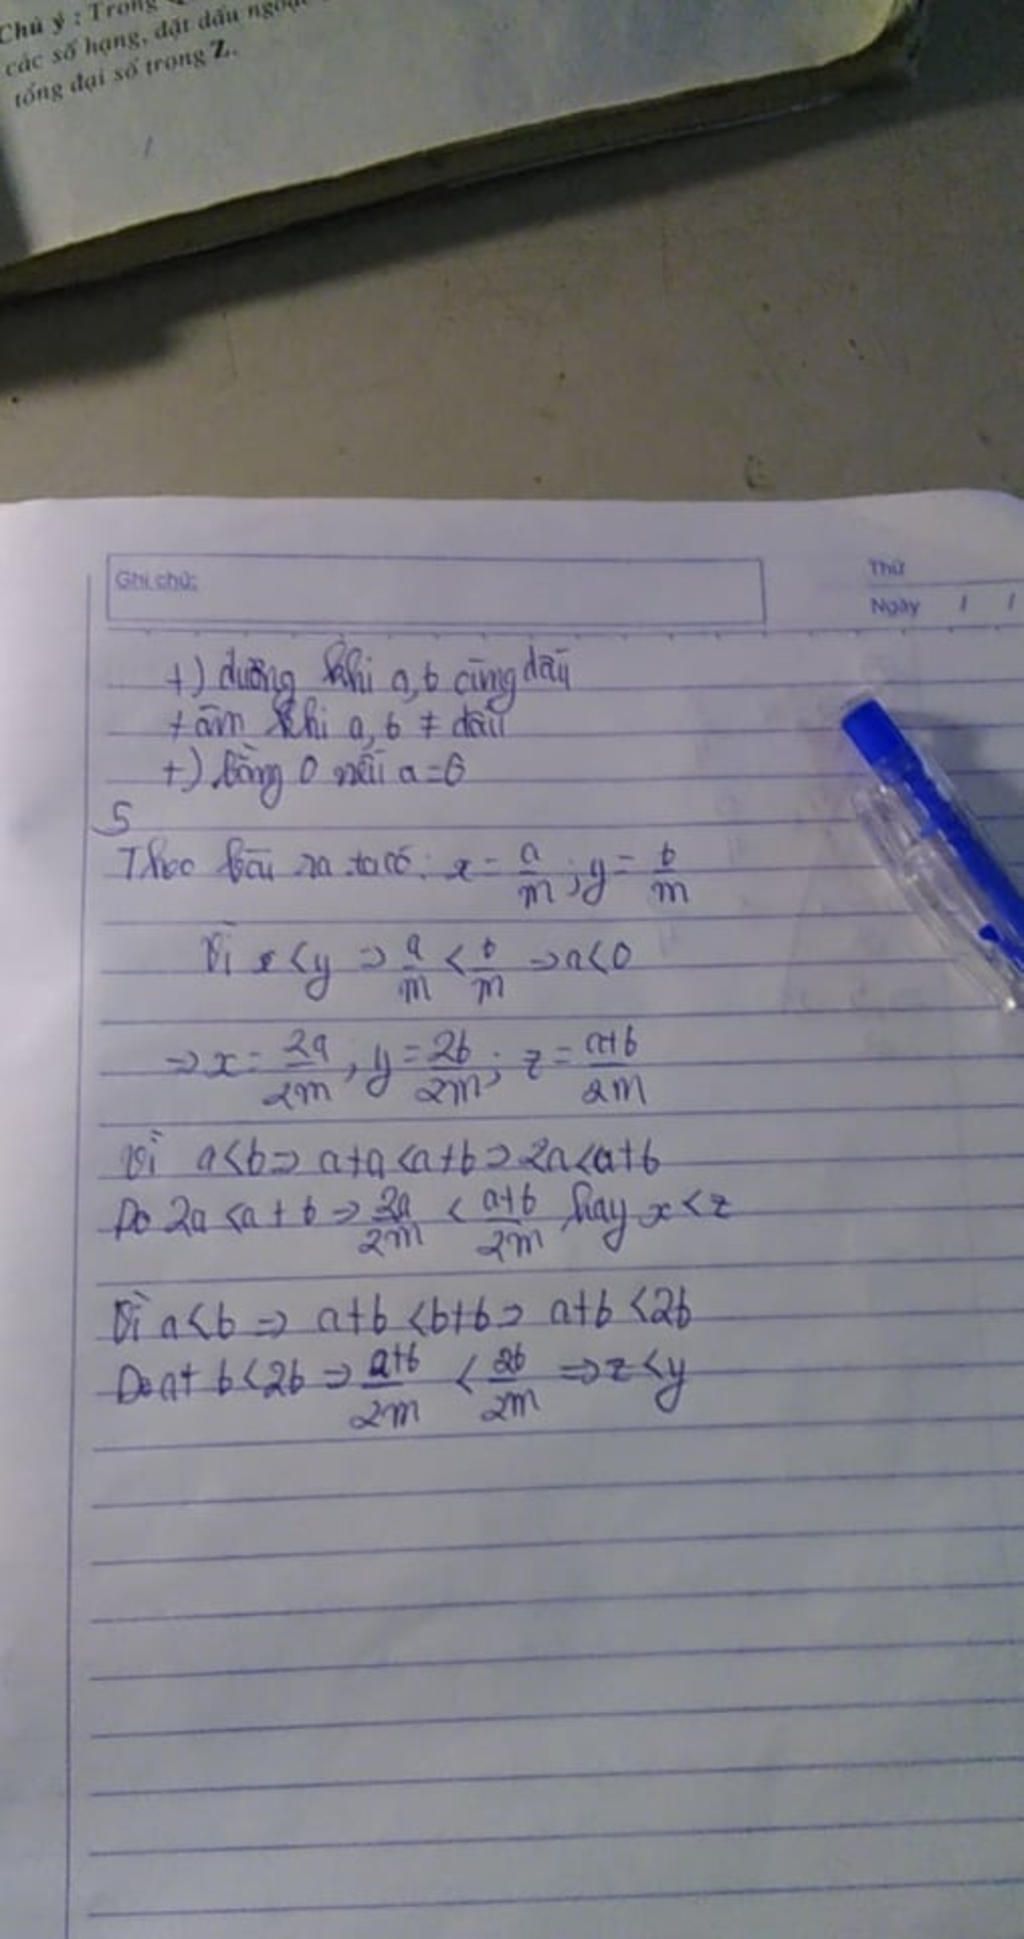 Chú ý : Trong
các số hạng, đặt dấu ngoặc
tổng đại số trong Z.
Ghi chú:
Thứ
Ngày / /
+) dương khi a, b cùng dấu
+ âm khi a, b ≠ dấu
+) bằng 0 nếu a = 0
5
Theo bài ra ta có: x = a/m ; y = b/m
Vì x < y => a/m < b/m => a < 0
=> x = 2a/2m , y = 2b/2m ; z = a+b/2m
Vì a < b => a + a < a + b => 2a < a + b
Do 2a < a + b => 2a/2m < a+b/2m hay x < z
Vì a < b => a + b < b + b => a + b < 2b
Do a + b < 2b => a+b/2m < 2b/2m => z < y